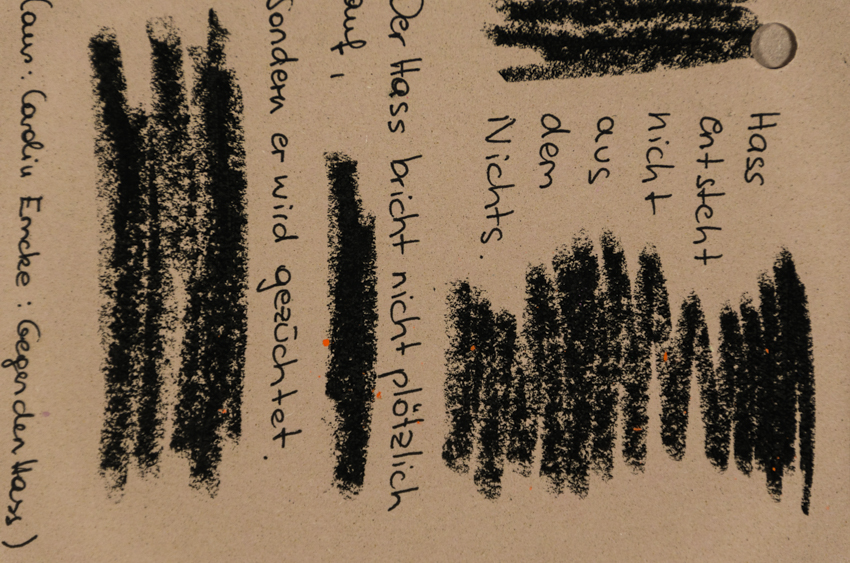 Hass
entsteht
nicht
aus
dem
Nichts.
Der Hass bricht nicht plötzlich
auf,
sondern er wird gezüchtet.
(aus: Carolin Emcke: Gegen den Hass)